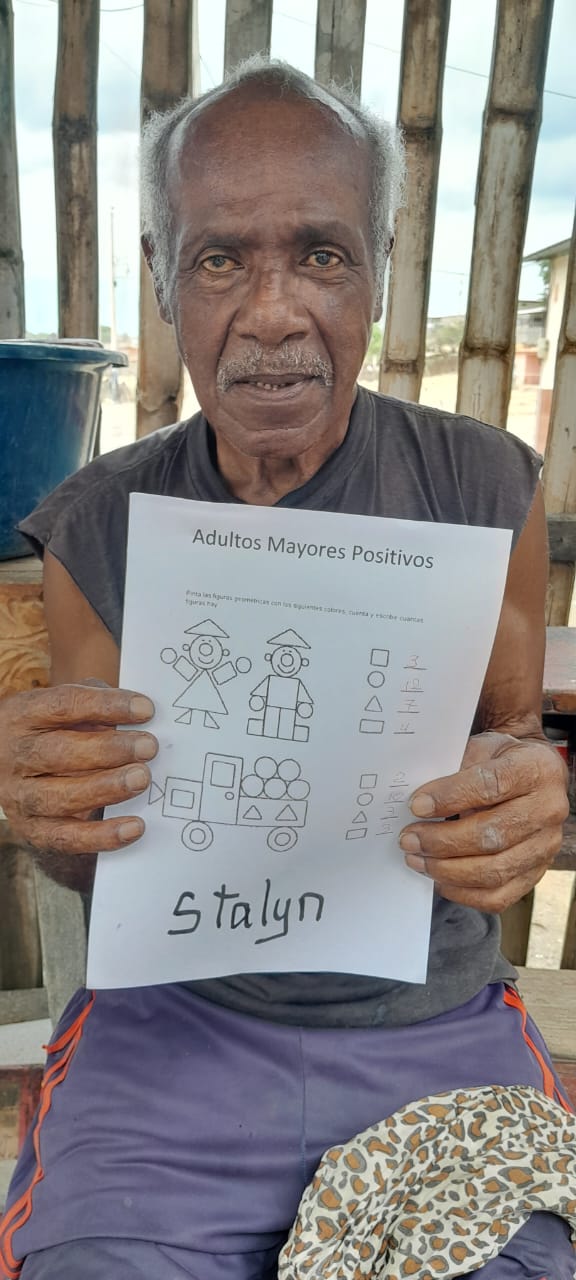 Adultos Mayores Positivos
Pinta las figuras geometricas con los siguientes colores, cuenta y escribe cuantas
figuras hay
3
12
7
4
2
10
3
3
Stalyn